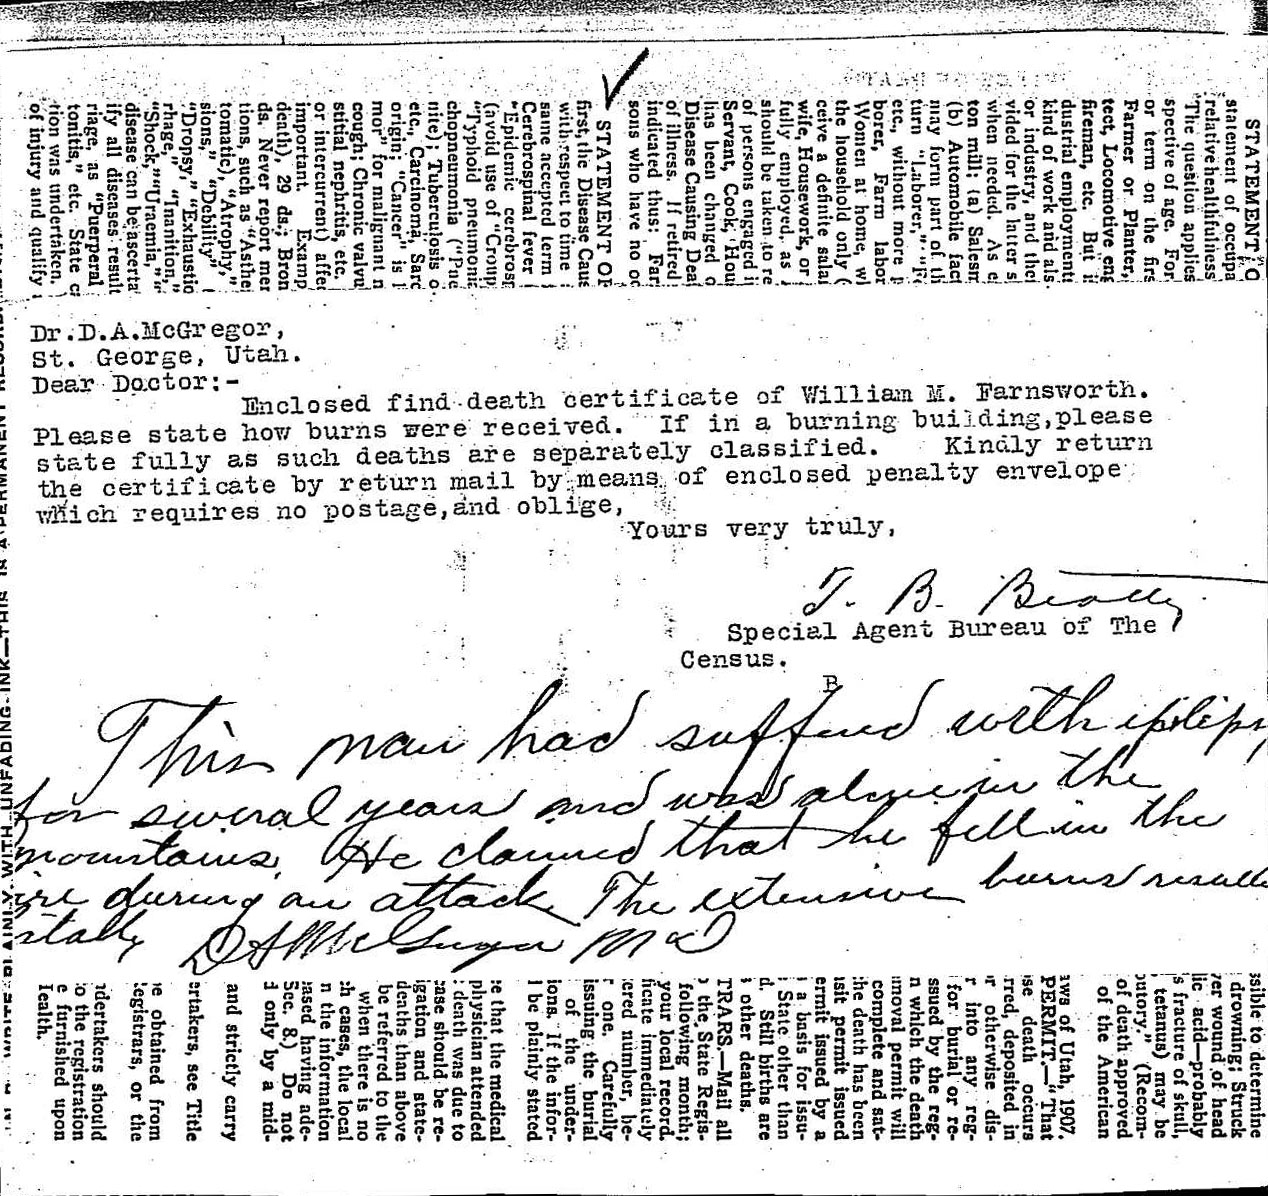 STATEMENT O
statement of occupa
relative healthfulness
"The question applies
spective of age. For
or term on the firs
Farmer or Planter,
tect, Locomotive eng
fireman, etc. But i
dustrial employment
kind of work and als
or industry, and the
vided for the latter s
when needed. As e
ton mill; (a) Salesm
(b) Automobile fact
may form part of th
turn "Laborer," "F
etc., without more p
borer, Farm labor
Women at home, w
the household only (
ceive a definite salar
wife, Housework, or
fully employed, as
should be taken to re
of persons engaged i
Servant, Cook, Hou
has been changed o
Disease Causing Dea
of illness. If retired
indicated thus: Far
sons who have no oc
STATEMENT OF
first, the Disease Caus
with respect to time
same accepted term
Cerebrospinal fever
"Epidemic cerebros
(avoid use of "Croup
"Typhoid pneumoni
chopneumonia ("Pne
nite); Tuberculosis o
etc., Carcinoma, Sarc
origin; "Cancer" is l
mor" for malignant n
cough; Chronic valvu
stitial nephritis, etc.
or intercurrent) affec
important. Examp
death), 29 ds.; Bron
ds. Never report mer
tions, such as "Asthe
tomatic), "Atrophy,"
sions," "Debility"
"Dropsy," "Exhaustio
rhage," "Inanition,"
"Shock," "Uraemia,"
disease can be ascerta
ify all diseases result
riage, as "Puerperal
tonitis," etc. State c
tion was undertaken.
of injury and qualify
Dr.D.A.McGregor,
St. George, Utah.
Dear Doctor:-
Enclosed find death certificate of William M. Farnsworth.
Please state how burns were received. If in a burning building,please
state fully as such deaths are separately classified. Kindly return
the certificate by return mail by means of enclosed penalty envelope
which requires no postage,and oblige,
Yours very truly,
T. B. Beatty
Special Agent Bureau of The
Census.
B
This man had suffered with epilipsy
for several years and was alone in the
mountains. He claimed that he fell in the
ire during an attack The extensive burns resulte
atally D A McGregor M D
ssible to determine
drowning; Struck
ver wound of head
lic acid—probably
s fracture of skull,
tetanus) may be
outory." (Recom-
of death approved
of the American
aws of Utah, 1907.
PERMIT.—That
se death occurs
rred, deposited in
r otherwise dis-
r into any reg-
for burial or re-
ssued by the reg-
n which the death
moval permit will
complete and sat-
he death has been
sit permit issued
ermit issued by a
a basis for issu-
State other than
d. Still births are
other deaths.
TRARS.—Mail all
the State Regis-
following month;
your local record.
ficate immediately
ered number, be-
r one. Carefully
issuing the burial
of the under-
ions. If the infor-
l be plainly stated
e that the medical
physician attended
death was due to
ase should be re-
igation and state-
deaths than above
be referred to the
when there is no
ch cases, the local
n the information
ased having ade-
Sec. 8.) Do not
d only by a mid-
and strictly carry
ertakers, see Title
e obtained from
egistrars, or the
ndertakers should
o the registration
e furnished upon
Health.
PLAINLY WITH UNFADING INK—THIS IS A PERMANENT RECORD